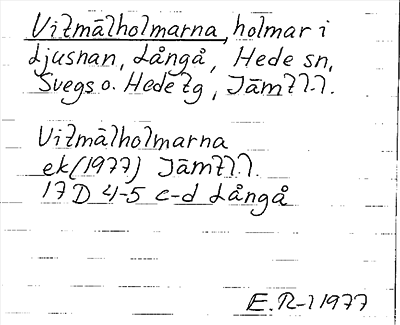 Vitmålholmarna, holmar i
Ljusnan, Långå, Hede sn,
Svegs o. Hede tg, Jämtl.l.
Vitmålholmarna
ek (1977) Jämtl.l.
17 D 4-5 c-d Långå
E.R-l 1977